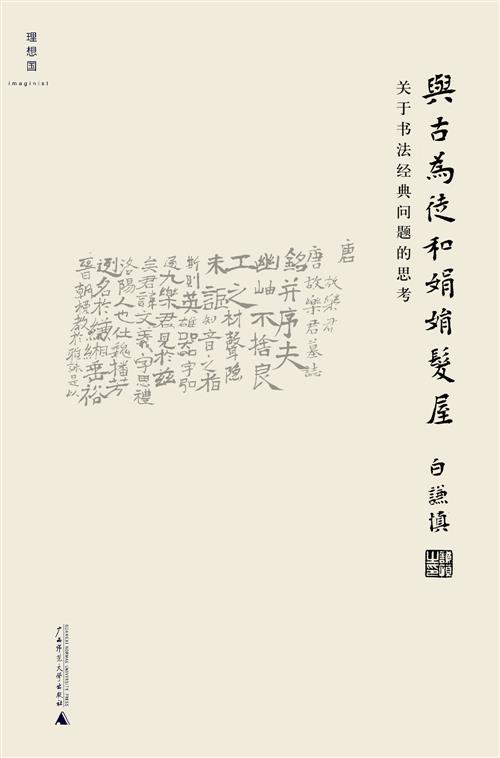 理想国
imaginist
與古為徒和娟娟髮屋
关于书法经典问题的思考
白謙慎
唐
故樂君
唐故樂君墓誌
銘并序夫
幽岫不捨良
工之材聲隐
未謳知音之指
斯則英雄器宇弘
九樂君見於兹
矣君諱文義字思禮
洛陽人也仕魏播芳
列名於緗岳裕
广西师范大学出版社
GUANGXI NORMAL UNIVERSITY PRESS